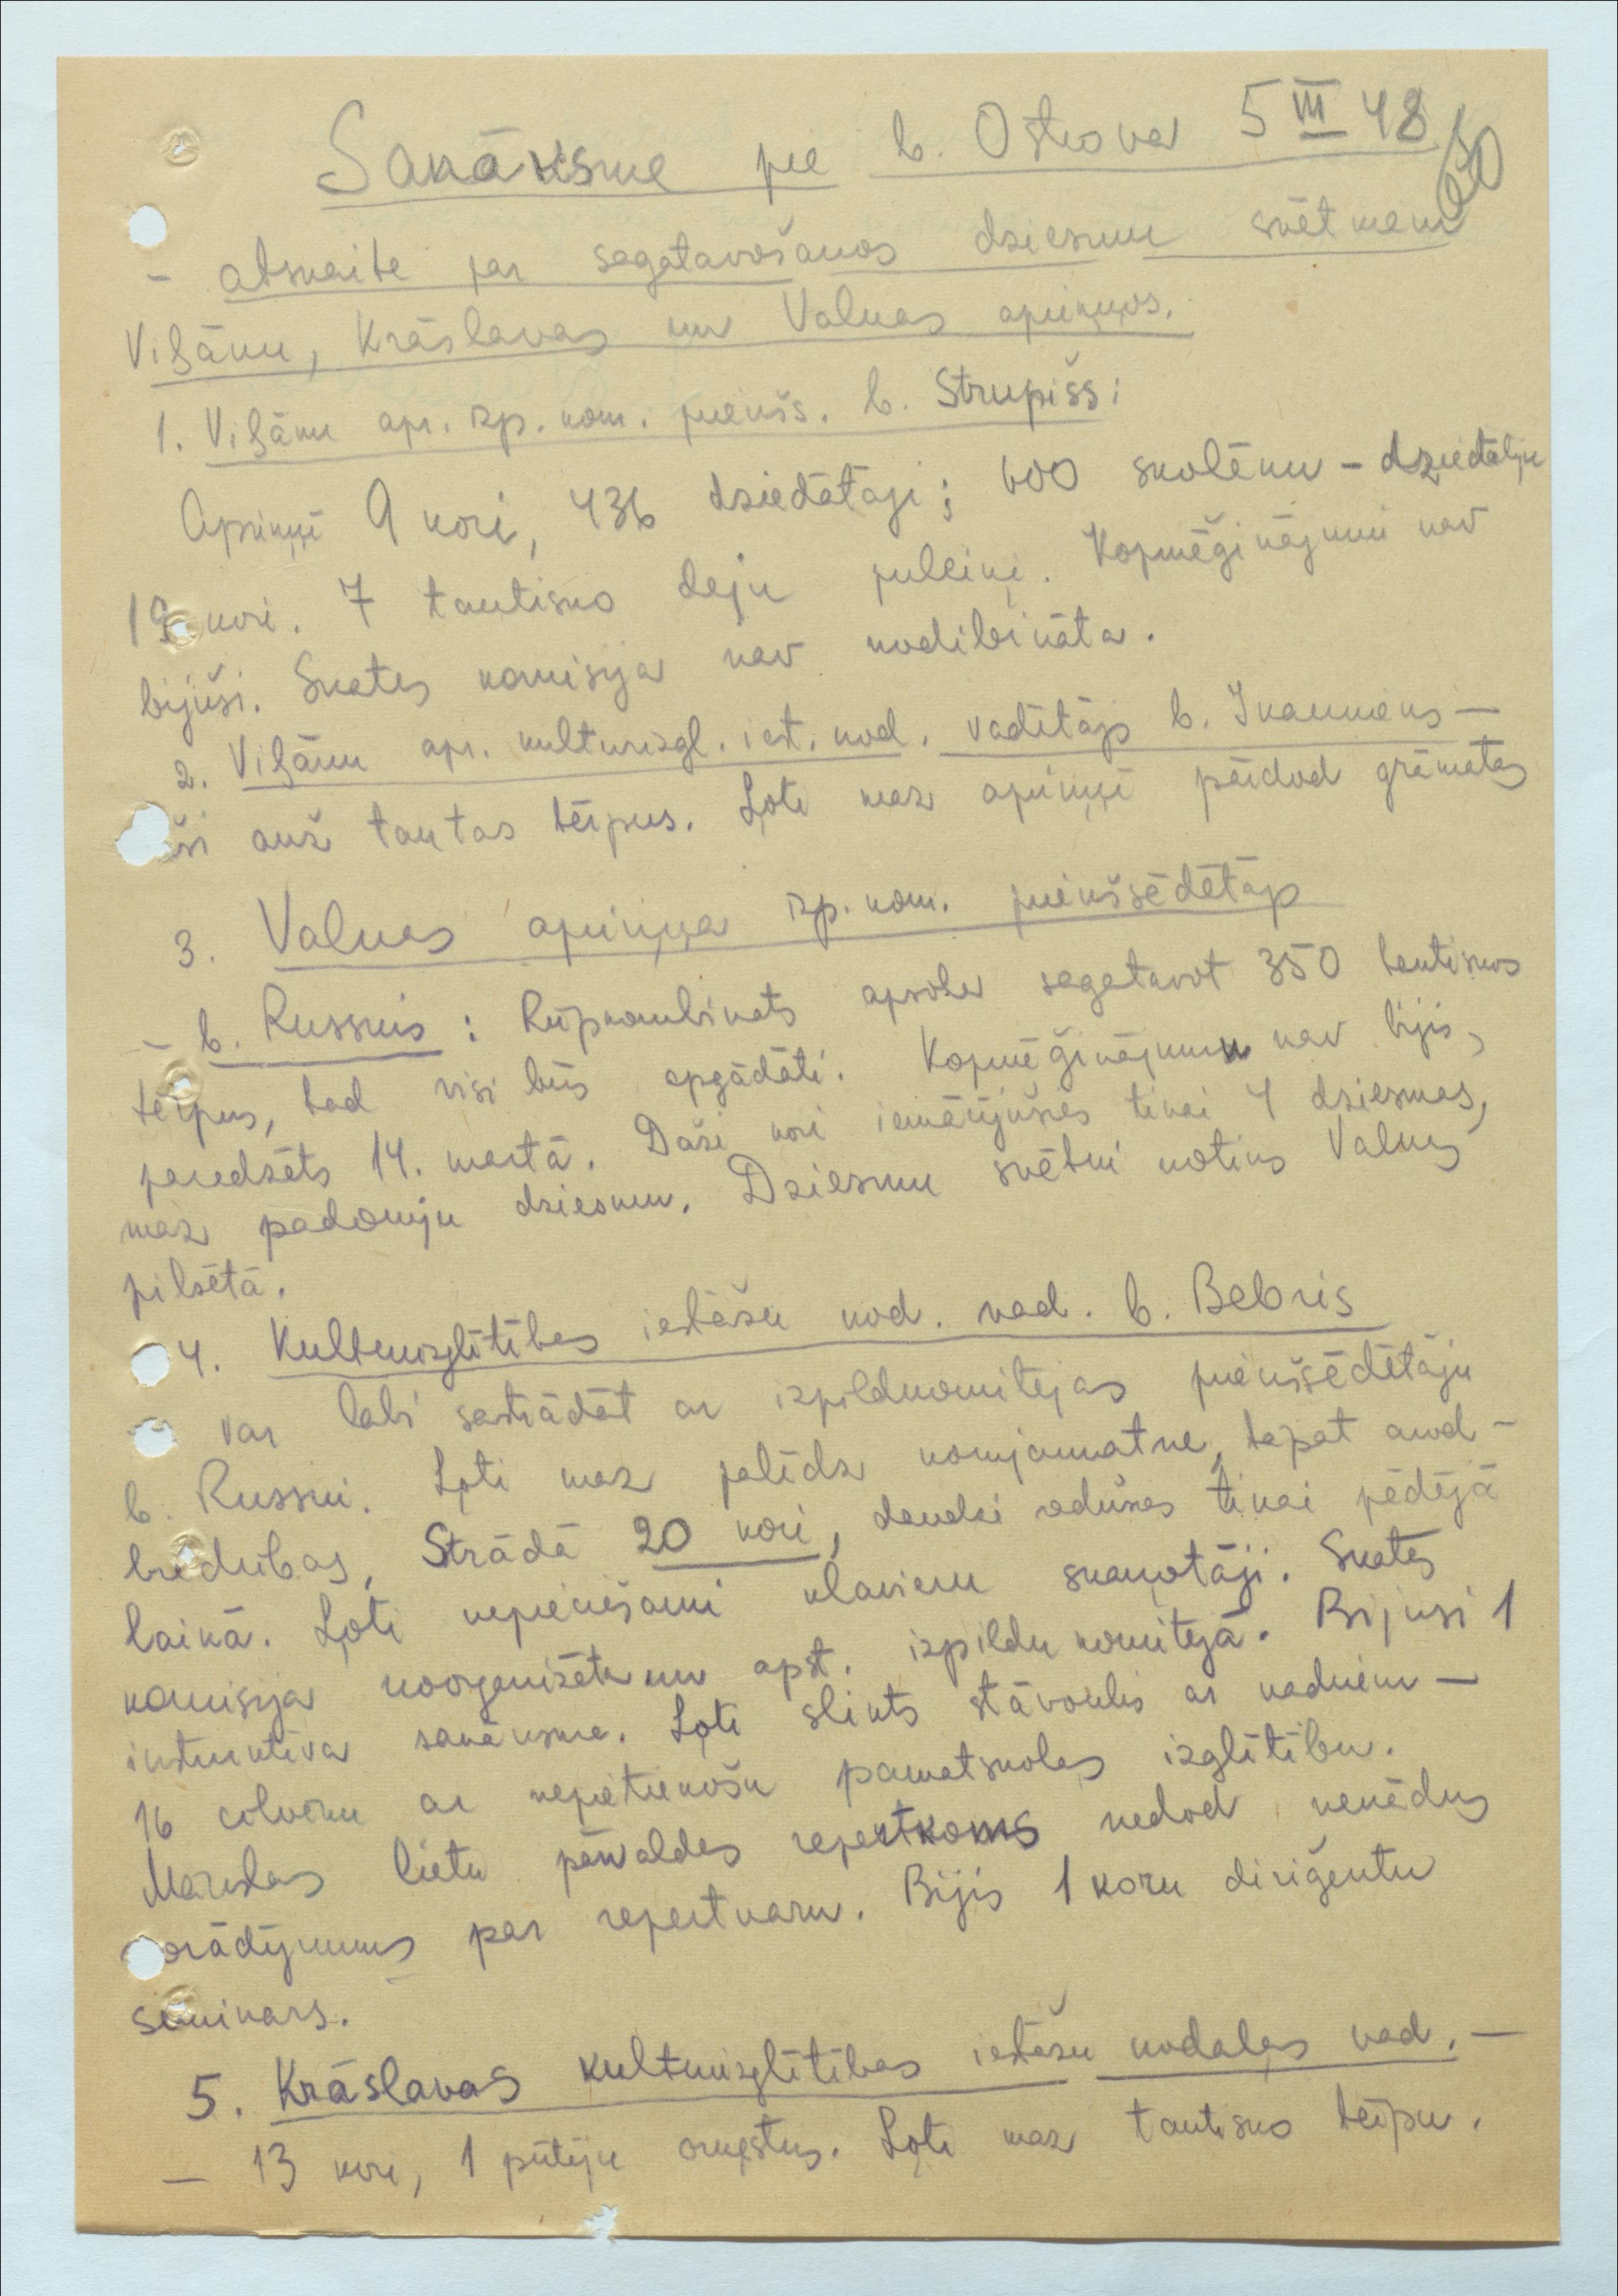 Sanāksme pie b. Ostrova 5 III 48
50
- atskaite par sagatavošanos dziesmu svētkiem
Viļānu, Krāslavas un Valkas apriņķos.
1. Viļānu apr. izp. kom. priekšs. b. Strupišs:
Apriņķī 9 kori, 436 dziedātāji; 600 skolēnu - dziedātāju
19 kori. 7 tautisko deju pulciņi. Kopmēģinājumi nav
bijuši. Skates komisija nav nodibināta.
2. Viļānu apr. kulturizgl. iest. nod. vadītājs b. Ikaunieks -
ši auž tautas tērpus. Ļoti maz apriņķī pārdod grāmatas
3. Valkas apriņķa izp. kom. priekšsēdētājs
- b. Russkis : Rūpkombināts apsola sagatavot 350 tautiskos
tērpus, tad visi būs apgādāti. Kopmēģinājumu nav bijis,
paredzēts 14. martā. Daži kori iemācījušies tikai 4 dziesmas,
maz padomju dziesmu. Dziesmu svētki notiks Valkas
pilsētā.
4. Kulturizglītības iestāžu nod. vad. b. Bebris
- var labi sastrādāt ar izpildkomitejas priekšsēdētāju
b. Russki. Ļoti maz palīdz komjaunatne, tāpat arod-
biedrības. Strādā 20 kori, daudzi radušies tikai pēdējā
laikā. Ļoti nepieciešami klavieru skaņotāji. Skates
komisija noorganizēta un apst. izpildu komitejā. Bijusi 1
instruktīva sanāksme. Ļoti slikts stāvoklis ar kadriem -
16 cilvēku ar nepietiekošu pamatskolas izglītību.
Mākslas lietu pārvaldes repertkoms nedod nekādus
norādījumus par repertuaru. Bijis 1 koru diriģentu
seminars.
5. Krāslavas kulturizglītības iestāžu nodaļas vad. -
- 13 kori, 1 pūtēju orķestris. Ļoti maz tautisko tērpu.